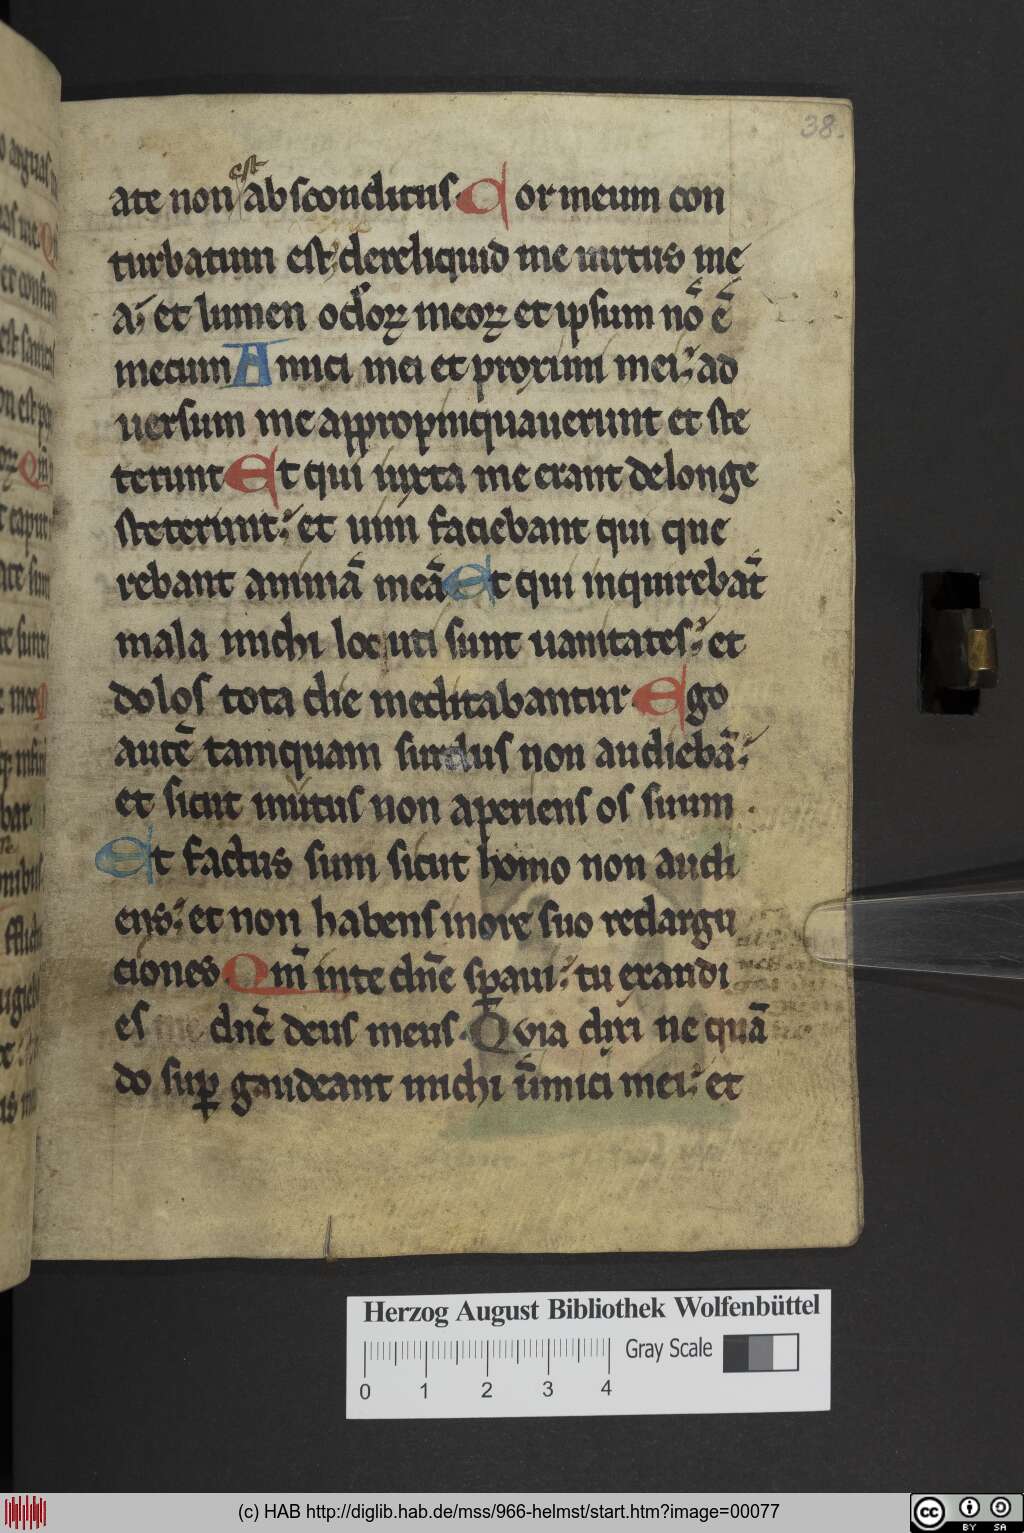 38.
est
ate non absconditus. Cor meum con
turbatum est dereliquid me uirtus me
a; et lumen oc̄lorꝝ meorꝝ et ipsum nō ē
mecum Amici mei et proximi mei; ad
uersum me appropinquauerunt et ste
terunt Et qui iuxta me erant de longe
steterunt; et uim faciebant qui que
rebant animā meā Et qui inquirebāt
mala michi locuti sunt uanitates; et
dolos tota die meditabantur. Ego
autē tamquam surdus non audiebā;
et sicut mutus non aperiens os suum.
Et factus sum sicut homo non audi
ens; et non habens in ore suo redargu
ciones. Qm̄ in te dn̄e sp̄aui; tu exaudi
es me dn̄e deus meus. Quia dixi ne quā
do suꝑ gaudeant michi inimici mei; et
Herzog August Bibliothek Wolfenbüttel
Gray Scale
0 1 2 3 4
(c) HAB http://diglib.hab.de/mss/966-helmst/start.htm?image=00077
cc BY SA